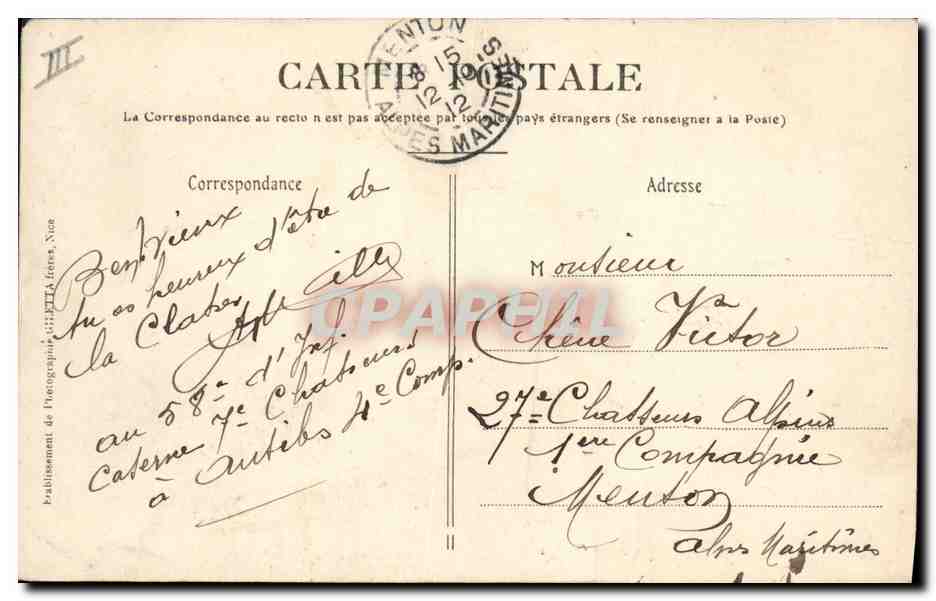 III
MENTON
8 15
12 - 9
12
ALPES MARITIMES
CARTE POSTALE
La Correspondance au recto n est pas acceptée par tous les pays étrangers (Se renseigner a la Poste)
Correspondance
Bent Vieux
tu es heureux d'être de
la Classe
au 58e d'Inf.
Caserne 7e Chasseurs
à Antibes 4e Comp.
Etablissement de Photographie GILETTA frères, Nice
CPAPHIL
Adresse
Monsieur
Chêne Victor
27e Chasseurs Alpins
1ère Compagnie
Menton
Alpes Maritimes